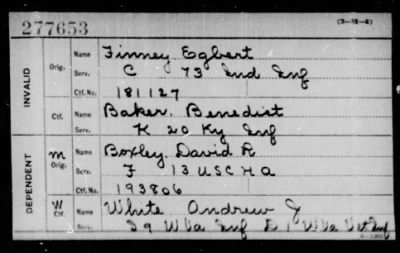 277653
(3-18-4)
INVALID
Orig.
Name Finney Egbert
Serv. C 73 Ind Inf
Ctf. No. 181127
Ctf.
Name Baker, Benedict
Serv. K 20 Ky Inf
DEPENDENT
M
Orig.
Name Boxley, David R
Serv. F 13 USC H A
Ctf. No. 193806
W
Ctf.
Name White Andrew J
W Va Inf 1 W Va Vet Inf